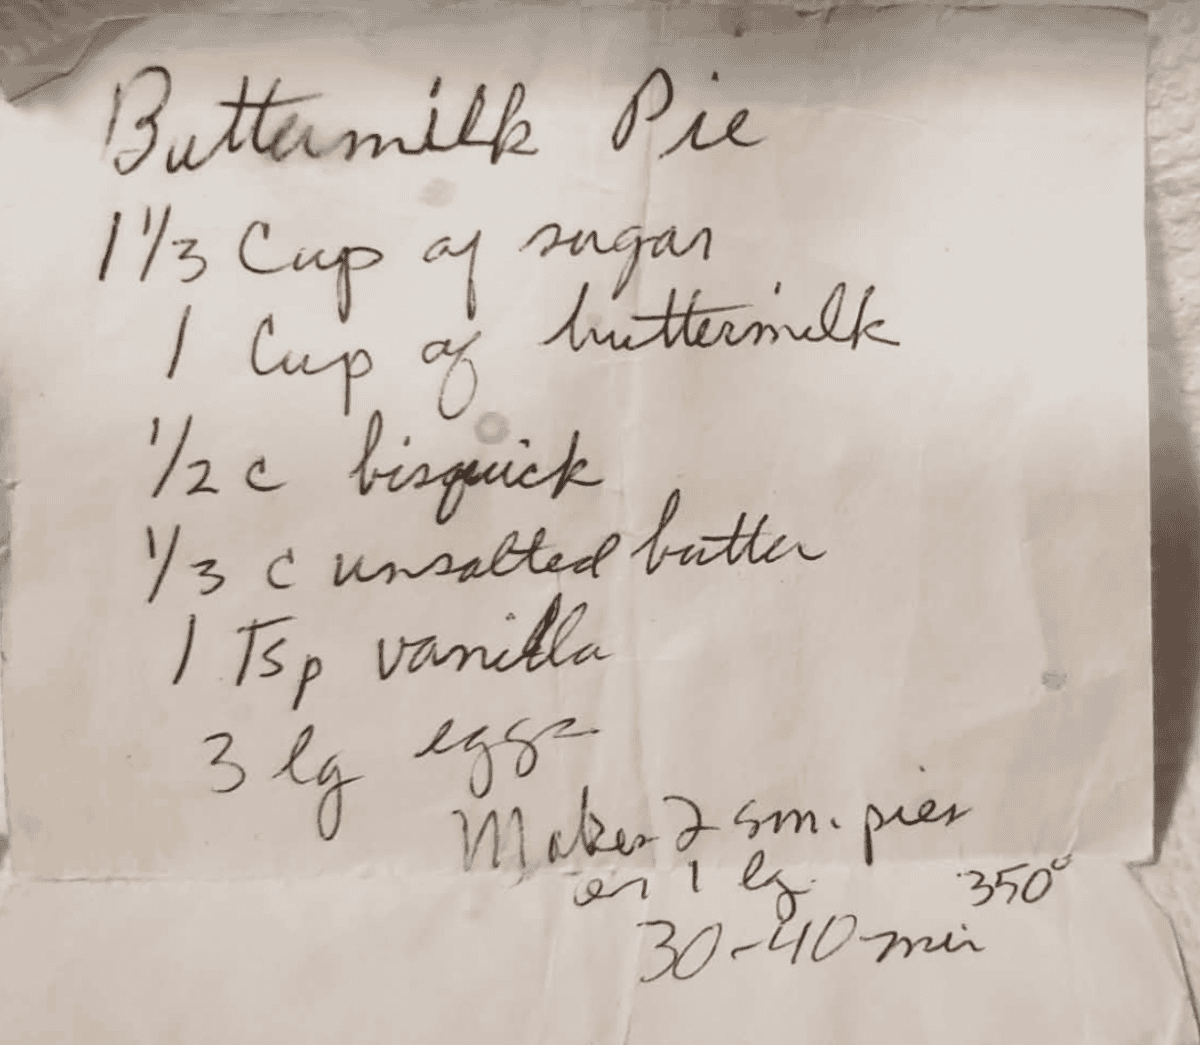 Buttermilk Pie
1 1/3 Cup of sugar
1 Cup of buttermilk
1/2 c bisquick
1/3 c unsalted butter
1 Tsp vanilla
3 lg eggs
Makes 2 sm. pies
or 1 lg.
350°
30-40 min